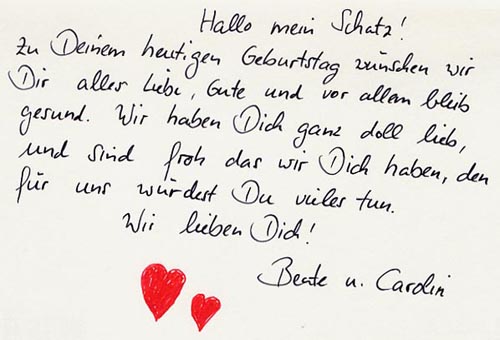 Hallo mein Schatz!
Zu Deinem heutigen Geburtstag wünschen wir
Dir alles Liebe, Gute und vor allem bleib
gesund. Wir haben Dich ganz doll lieb,
und sind froh das wir Dich haben, den
für uns würdest Du vieles tun.
Wir lieben Dich!
Beate u. Carolin